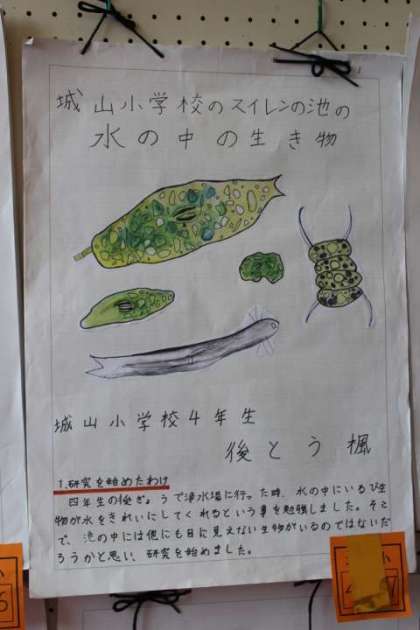 城山小学校のスイレンの池の
水の中の生き物
城山小学校4年生
後とう 楓
1.研究を始めたわけ
四年生の授ぎょうで浄水場に行った時、水の中にいるび生
物が水をきれいにしてくれるという事を勉強しました。そこ
で、池の中には他にも目に見えない生物がいるのではないだ
ろうかと思い、研究を始めました。